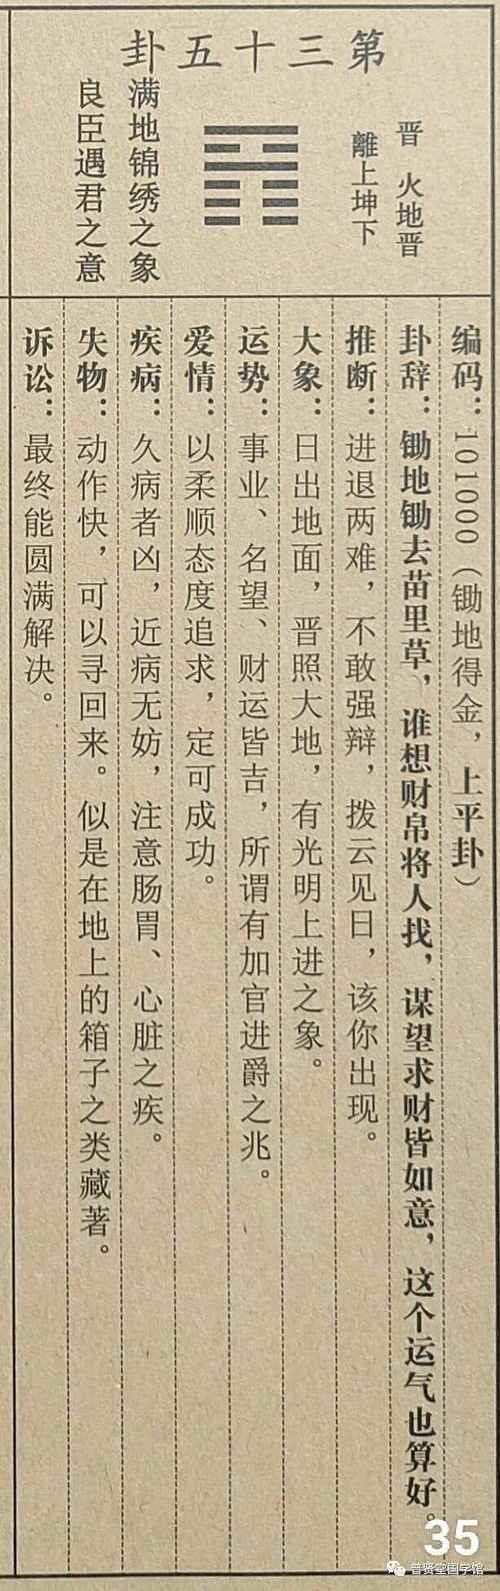 第三十五卦
晋 火地晋
離上坤下
满地锦绣之象
良臣遇君之意
编码：101000（锄地得金，上平卦）
卦辞：锄地锄去苗里草，谁想财帛将人找，谋望求财皆如意，这个运气也算好。
推断：进退两难，不敢强辩，拨云见日，该你出现。
大象：日出地面，晋照大地，有光明上进之象。
运势：事业、名望、财运皆吉，所谓有加官进爵之兆。
爱情：以柔顺态度追求，定可成功。
疾病：久病者凶，近病无妨，注意肠胃、心脏之疾。
失物：动作快，可以寻回来。似是在地上的箱子之类藏著。
诉讼：最终能圆满解决。
35
普贤堂国学馆